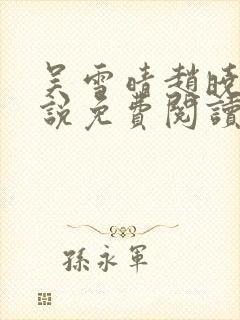 吴雪晴趙曉
說免費閱讀
孫永軍